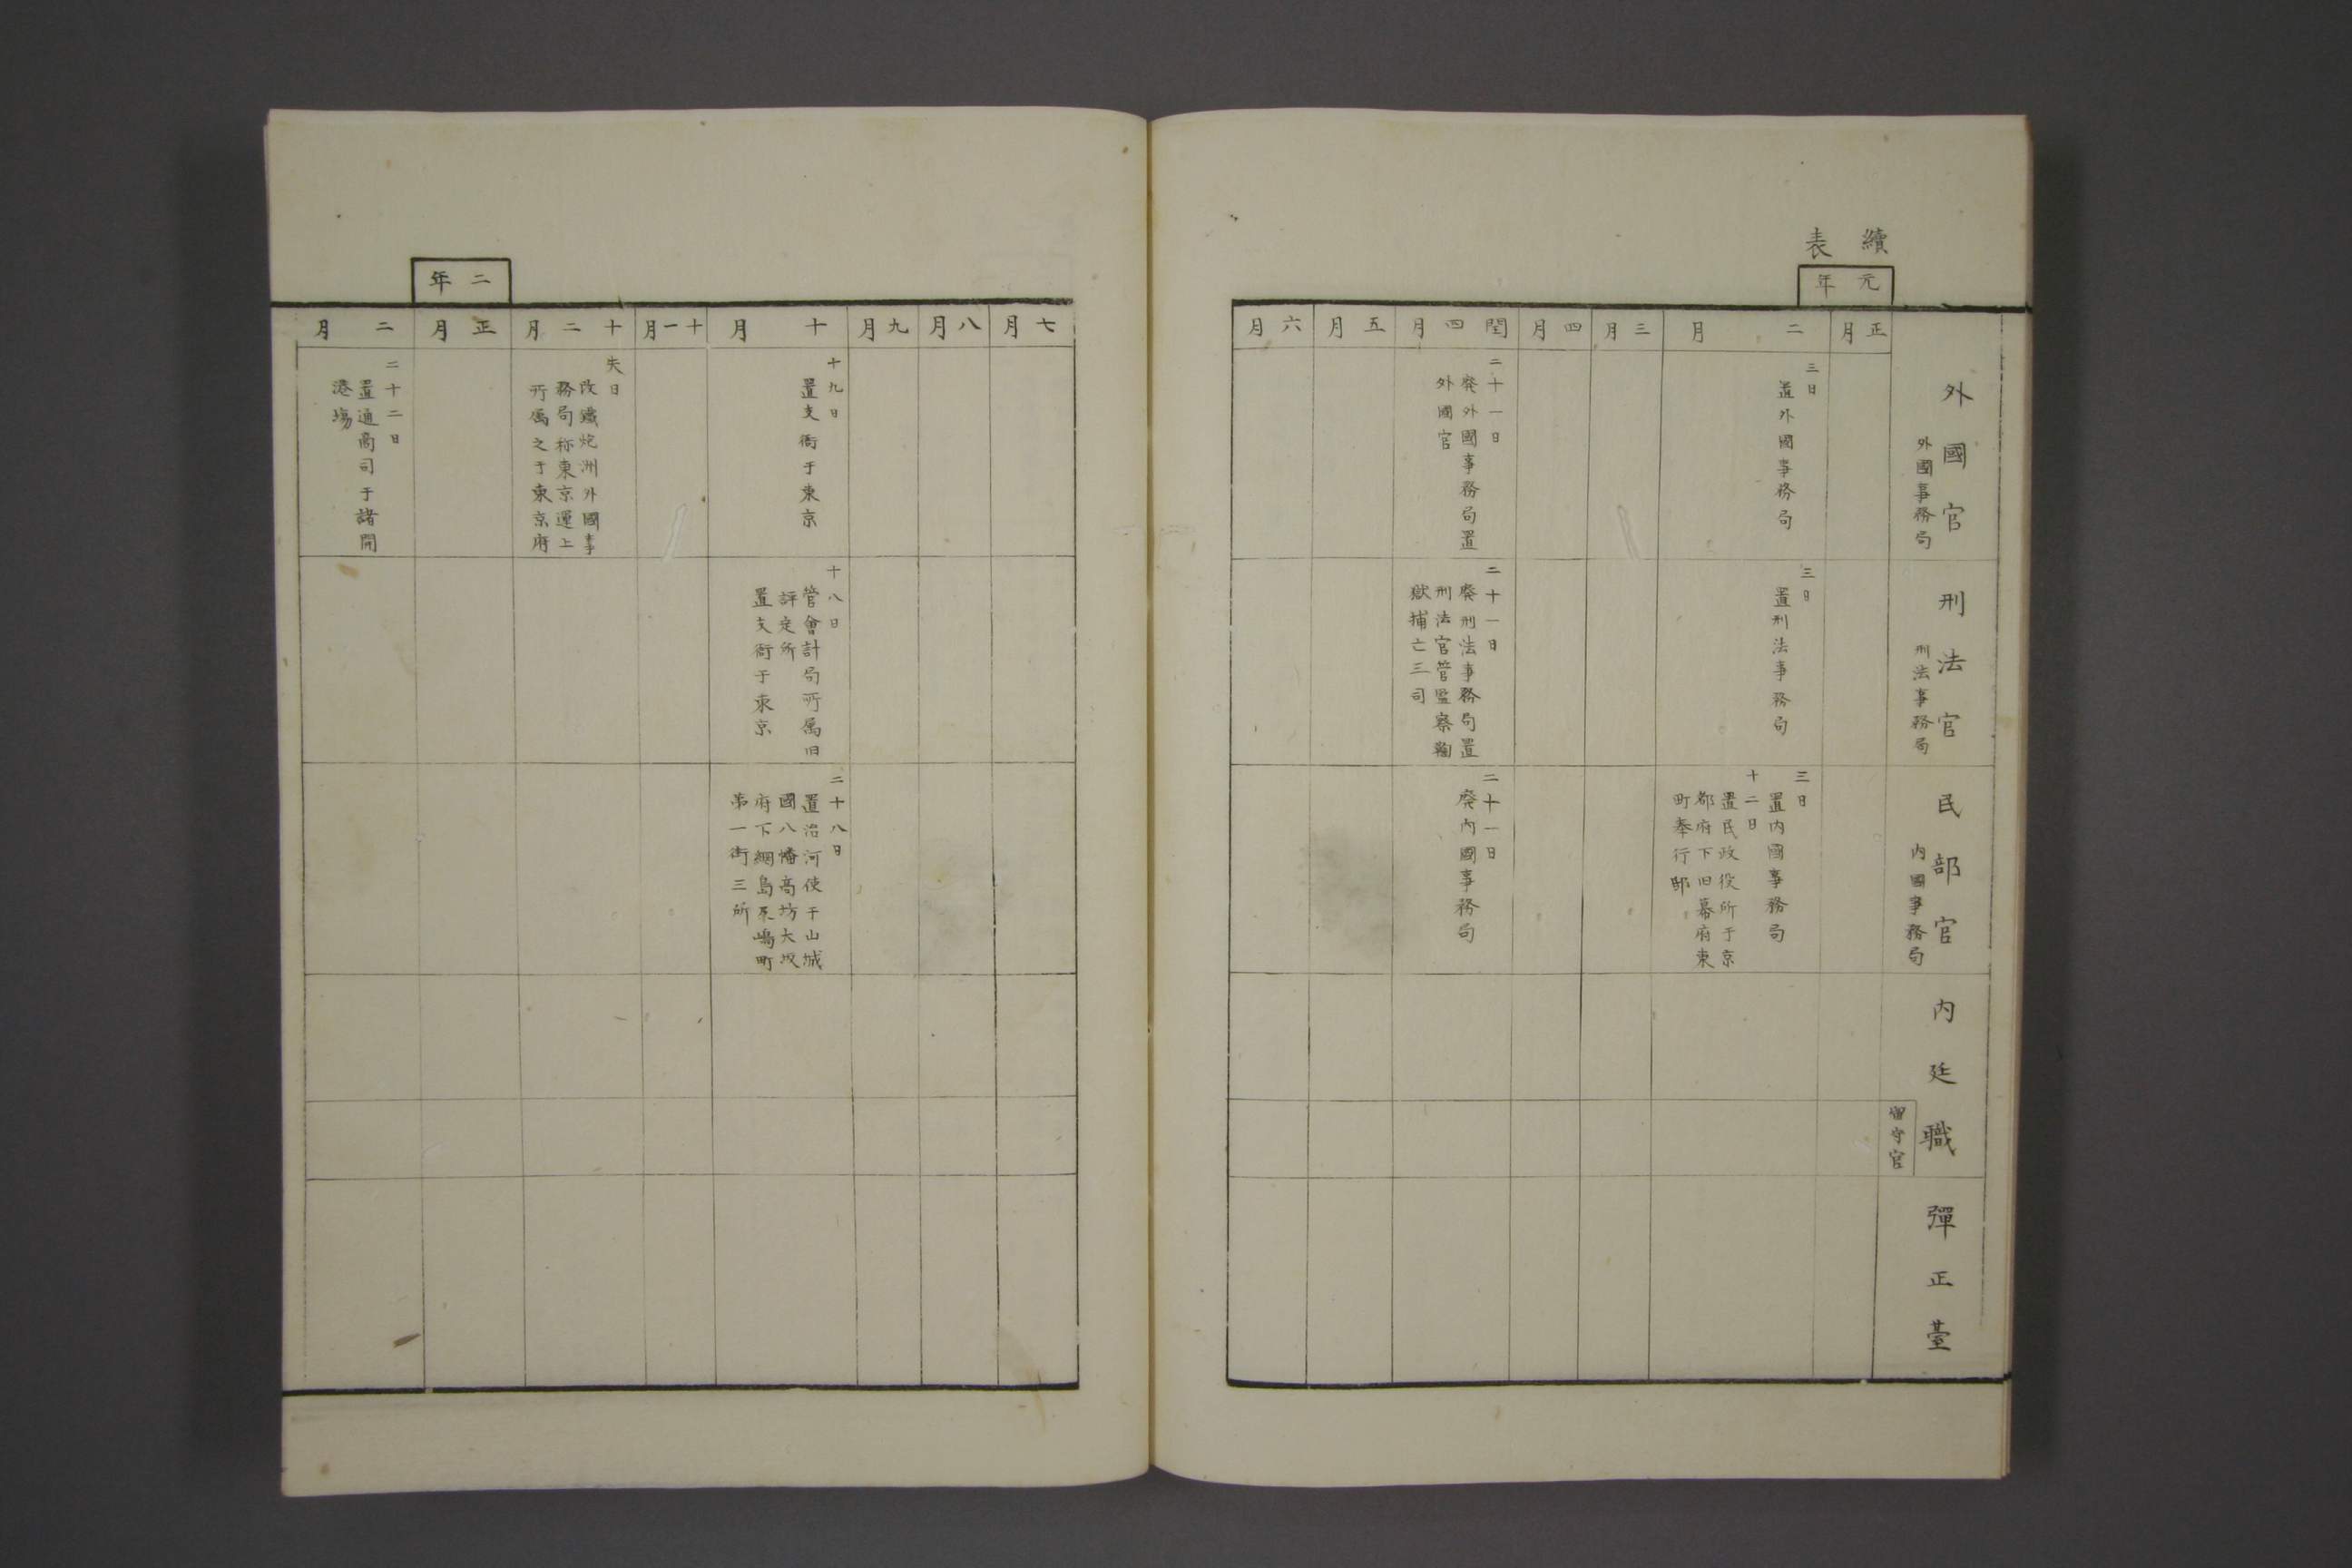 續表
元年
正月
二月
三月
四月
閏四月
五月
六月
外國官
外國事務局
三日
置外國事務局
二十一日
廃外國事務局置
外國官
刑法官
刑法事務局
三日
置刑法事務局
二十一日
廃刑法事務局置
刑法官管監察鞫
獄捕亡三司
民部官
内國事務局
三日
置内國事務局
十二日
置民政役所于京
都府下旧幕府東
町奉行邸
二十一日
廃内國事務局
内廷職
留守官
彈正臺
七月
八月
九月
十月
十一月
十二月
二年
正月
二月
十九日
置支衙于東京
失日
改鐵炮洲外國事
務局称東京運上
所属之于東京府
二十二日
置通商司于諸開
港場
十八日
管會計局所属旧
評定所
置支衙于東京
二十八日
置治河使于山城
國八幡高坊大坂
府下網島京嶋町
第一街三所